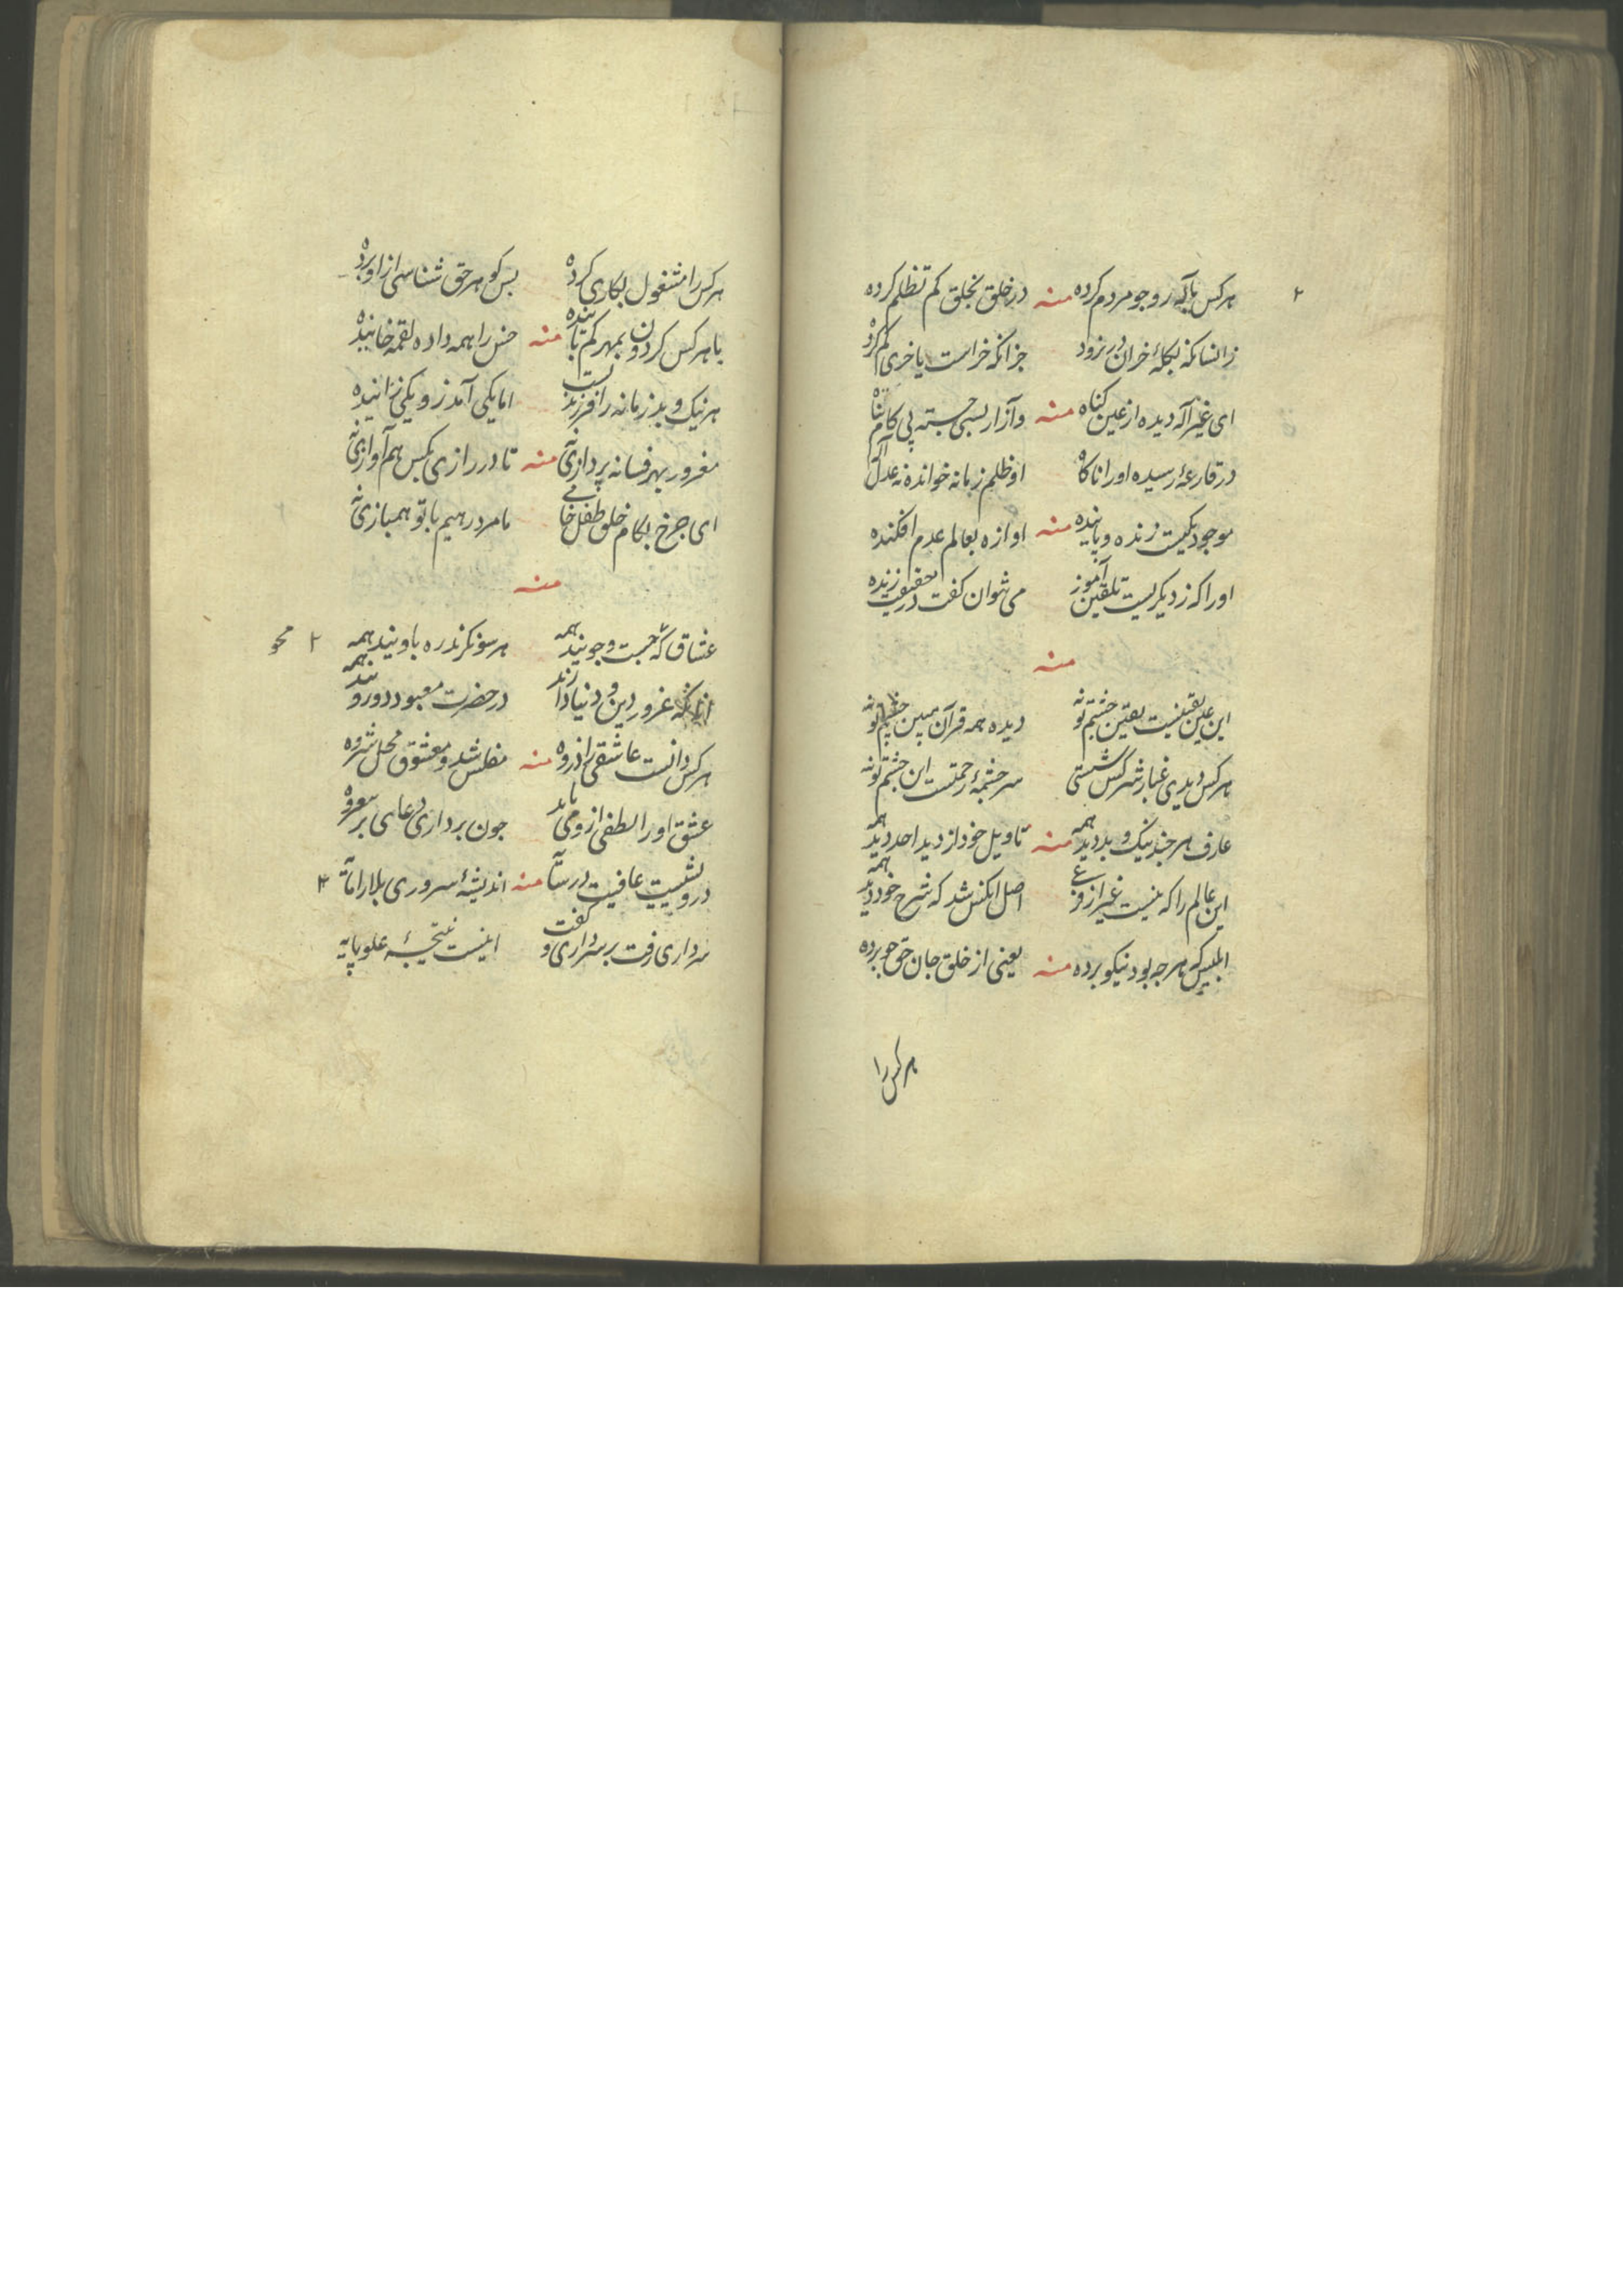 هرکس بآیه رو جو مردم کرده منه در خلق بخلق کم تظلم کرده ۲
زانسانکه بکلهٔ خران در نرود جز آنکه خراست یا خری کم کرده
ای غیر اله دیده از عین کناه منه وآزار بسی جسته پی کام
در قارعهٔ رسیده او را ناکاه او ظلم زمانه خوانده نه عدل آله
موجود یکیست زنده و پاینده منه اوازه بعالم عدم افکنده
اورا که ز دیکریست تلقین آموز می نتوان کفت در حقیقت زنده
منه
این عین یقینست یقین چشم تو نه دیده همه قرآن مبین چشم تو نه
هرکس دیدی غبار شرکش شستی سر چشمهٔ رحمتست این چشم تو نه
عارف هر چند نیک و بد دید همه منه تاویل خود از دید احد دید همه
این عالم را که نیست غیر از وی اصل آنکس شد که شرح خود دید همه
ابلیس که هرچه بود نیکو برده منه یعنی از خلق جان حق جو برده
هرکس را
هرکس را مشغول بکاری کرده بس کوهر حق شناسی از او برده
با هرکس کردون بمهر کم تابنده منه خس را همه داده لقمه خاییده
هر نیک و بد زمانه را فرزند یست اما یکی آمد ز و یکی زاییده
مغرور بهر فسانه پردازی نهٔ منه تا در رازی بکس هم آوازی نهٔ
ای چرخ بکام خلق طفل خامی ما مرد رهیم با تو همبازی نهٔ
منه
عشاق که جست و جویند همه هر سو نکرند ره باویند همه ۲ محو
آنانکه غرور دین و دنیا دارند در حضرت معبود دورویند همه
هرکس دانست عاشقی را ذروه منه مفلس شد و معشوق محل ثروه
عشق او را لطفی ازو می باید چون برداری دعای بر
درویشیست عافیت در منه اندیشهٔ سروری بلا را ۳
سرداری رفت بر سر داری و کفت اینست نتیجهٔ علو پایه